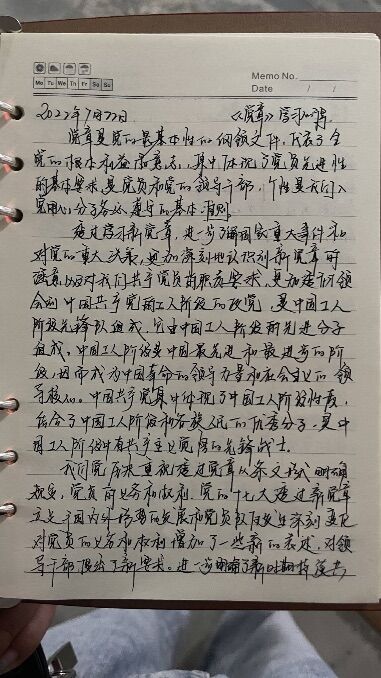 Memo No.
Mo Tu We Th Fr Sa Su
Date / /
2022年7月22日 《党章》学习心得
党章是党的最基本性的纲领文件,代表了全
党的根本利益高意志,集中体现了党员先进性
的基本要求,是党员和党的领导干部,个性是我们入
党积分子务必遵守的基本准则
通过学习新党章,进一步了解国家重大事件和
对党的重大决策,更加深刻地认识到新党章的
涵意,以及对我们共产党员的职责要求,更加
会到中国共产党是工人阶级的政党,是中国工人
阶级先锋队组成,它由中国工人阶级的先进分子
组成,中国工人阶级是中国最先进和最进步的阶
级,因而成为中国革命的领导力量和社会主义的领
导核心。中国共产党集中体现了中国工人阶级性质,
结合了中国工人阶级和各族人民的优秀分子,是中
国工人阶级中有共产主义觉悟的先锋战士。
我们党历来重视通过党章以条文形式明确
规定,党员的义务和权利,党的十七大通过新党章
立足于国内外形势的发展和党员队伍发生深刻变化
对党员的义务和权利增加了一些新的表述,对领
导干部提出了新要求。进一步明确了新时期